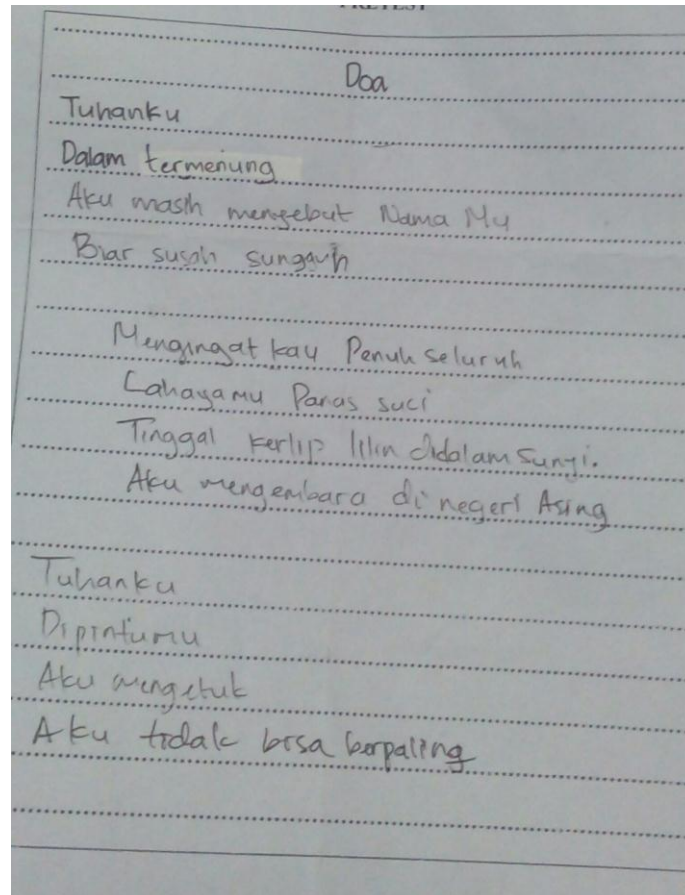 Doa
Tuhanku
Dalam termenung
Aku masih mengebut Nama Mu
Biar susah sungguh
Mengingat kau Penuh seluruh
Cahayamu Panas suci
Tinggal kerlip lilin didalam sunyi.
Aku mengembara di negeri Asing
Tuhanku
Dipintumu
Aku mengetuk
Aku tidak bisa berpaling